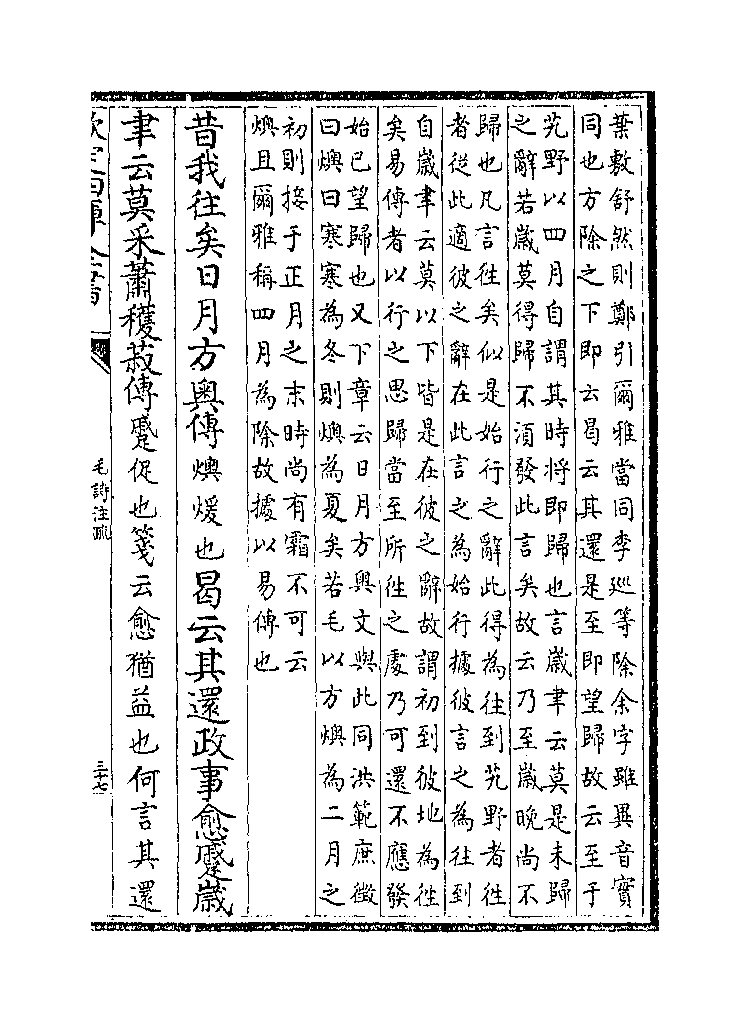 葉敷舒然則鄭引爾雅當同李廵等除余字雖異音實
同也方除之下即云曷云其還是至即望歸故云至于
艽野以四月自謂其時将即歸也言歳聿云莫是未歸
之辭若歳莫得歸不須發此言矣故云乃至歳晩尚不
歸也凡言徃矣似是始行之辭此得為往到艽野者徃
者從此適彼之辭在此言之為始行據彼言之為往到
自歳聿云莫以下皆是在彼之辭故謂初到彼地為徃
矣易傳者以行之思歸當至所徃之處乃可還不應發
始已望歸也又下章云日月方奥文與此同洪範庶徴
曰燠曰寒寒為冬則燠為夏矣若毛以方燠為二月之
初則接于正月之末時尚有霜不可云
燠且爾雅稱四月為除故據以易傳也
昔我往矣日月方奥傳燠煖也曷云其還政事愈蹙歳
聿云莫采蕭穫菽傳蹙促也箋云愈猶益也何言其還
欽定四庫全書
毛詩注疏
三十七